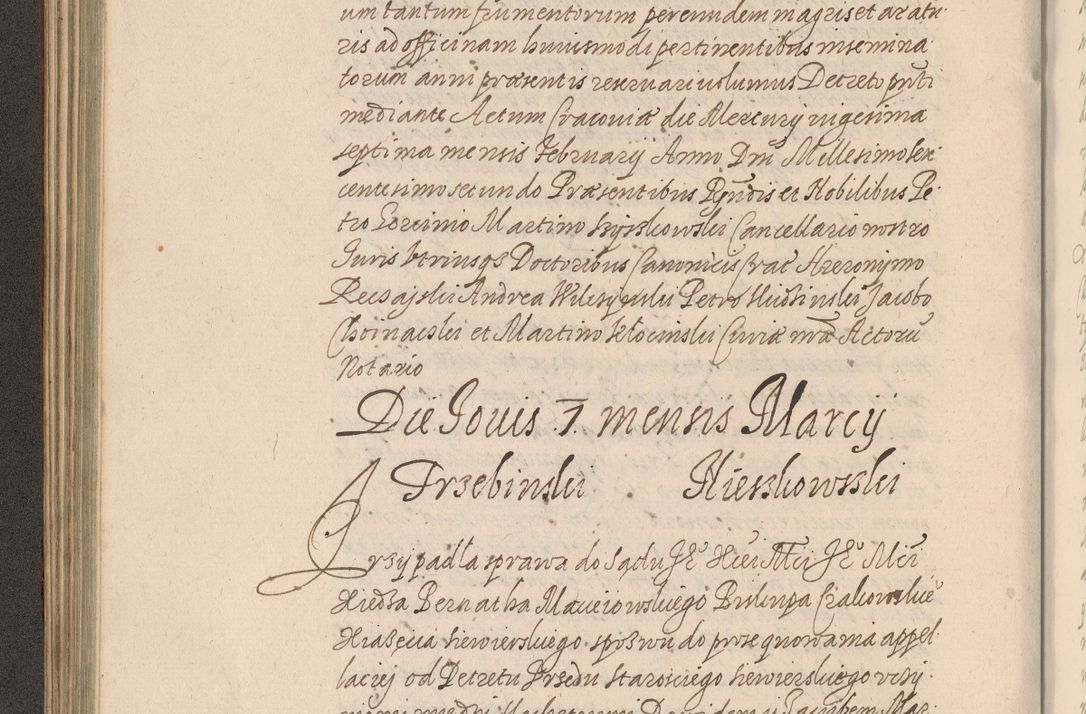 um tantum frumentorum per eundem magris et aratu
ris ad officinam huiusmodi pertinentibus insemina
torum anni præsentis reseruari uolumus Decreto pnti
mediante Actum Cracouiæ die Mercurij uigesima
septima mensis Februarij Anno Dni Millesimo sex
centesimo secundo Præsentibus Rndis et Nobilibus Pe
tro Gorcinio Martino Szyszkowski Cancellario nostro
Iuris vtriusqs Doctoribus Canonicis Crac Hieronymo
Andrea Petro Jacobo
et Martino Kłocinski Curiæ nræ Actoru
Notario
Die Jouis 7. mensis Marcy
Trzebinski . Kieszkowski
Przypadła sprawa do Sądu Je Xcei Mci Je Mci
Xiedza Bernatha Macieiowskiego Biskupa Crakowskie
Xiazęcia Siewierskiego sprzwu do prosequowania appel
laciej od Decretu Vrsedu Starosciego Siewierskiego vczy